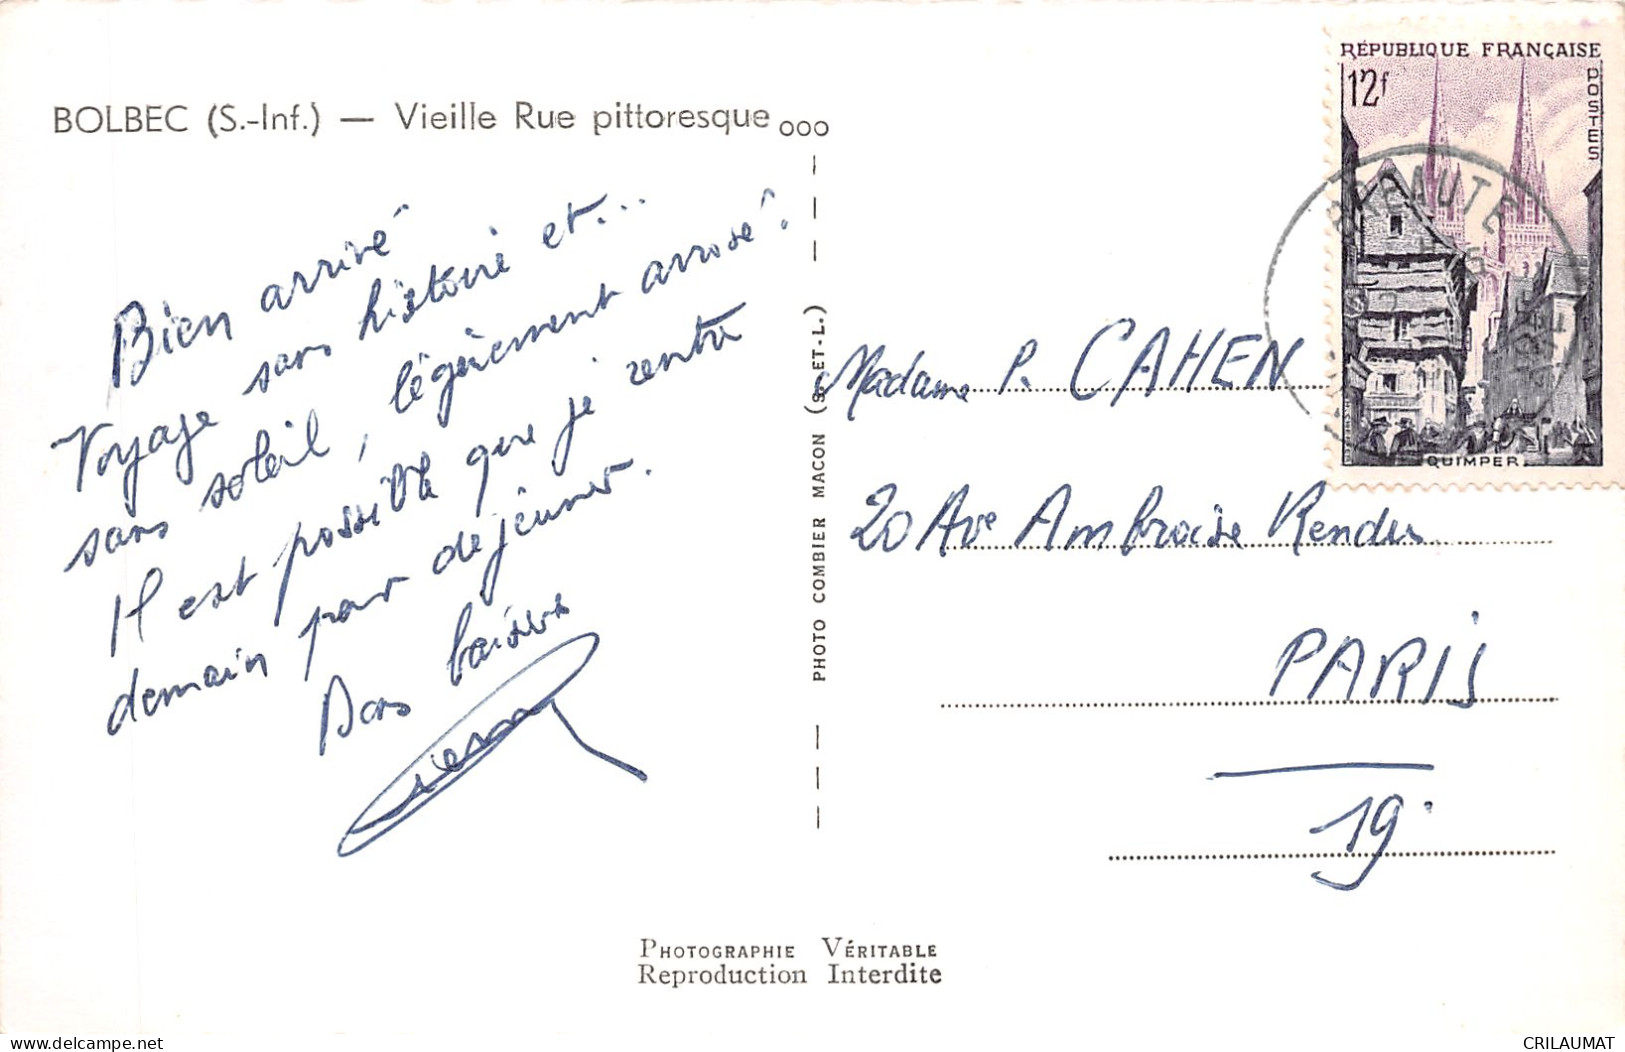 BOLBEC (S.-Inf.) — Vieille Rue pittoresque ooo
Bien arrivé
Voyage sans histoire et...
sans soleil, légèrement arrosé.
Il est possible que je rentre
demain pour déjeuner.
Bons baisers
PHOTO COMBIER MACON (S.-ET-L.)
RÉPUBLIQUE FRANÇAISE
12f
POSTES
QUIMPER
BRÉAUTÉ
Madame P. CAHEN
20 Ave Ambroise Rendu
PARIS
19.
PHOTOGRAPHIE VÉRITABLE
Reproduction Interdite
www.delcampe.net
CRILAUMAT